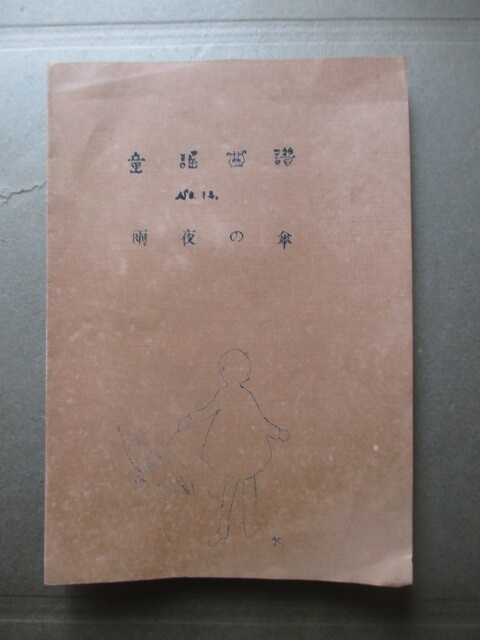 童謡画譜
No. 13.
雨夜の傘